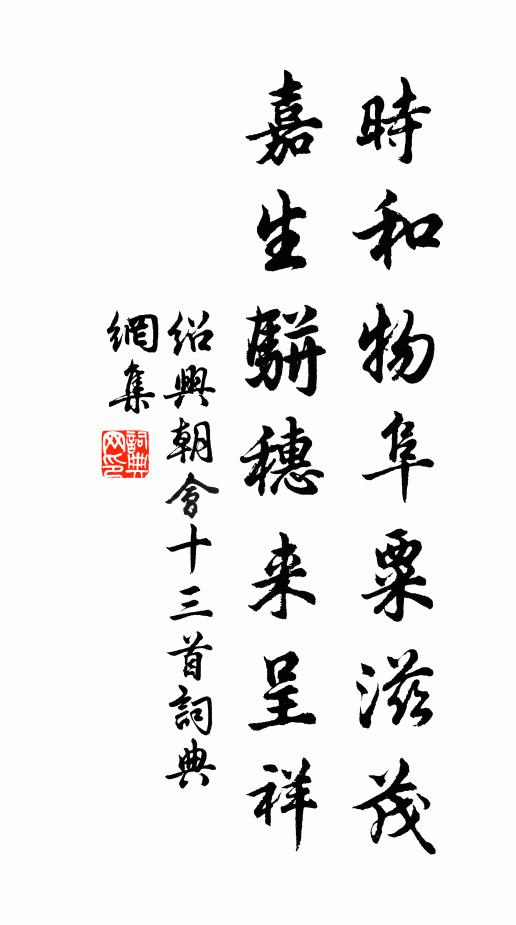 時和物阜粟滋茂
嘉生駢穗来呈祥
绍興朝會十三首詞典
網集
詞典
网印